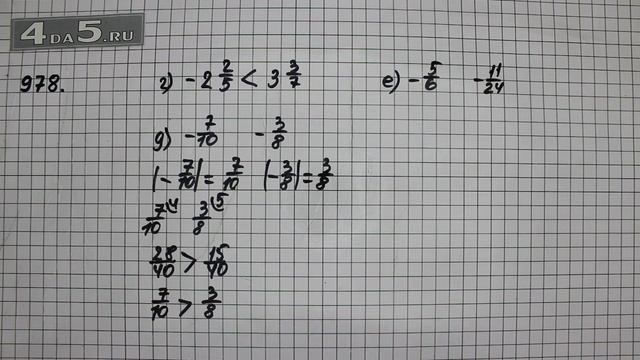 4DA5.RU
978.
г) -2 2/5 < 3 3/7
е) -5/6 -11/24
д) -7/10 -3/8
|-7/10| = 7/10 |-3/8| = 3/8
7/10 \4 3/8 \5
28/40 > 15/40
7/10 > 3/8